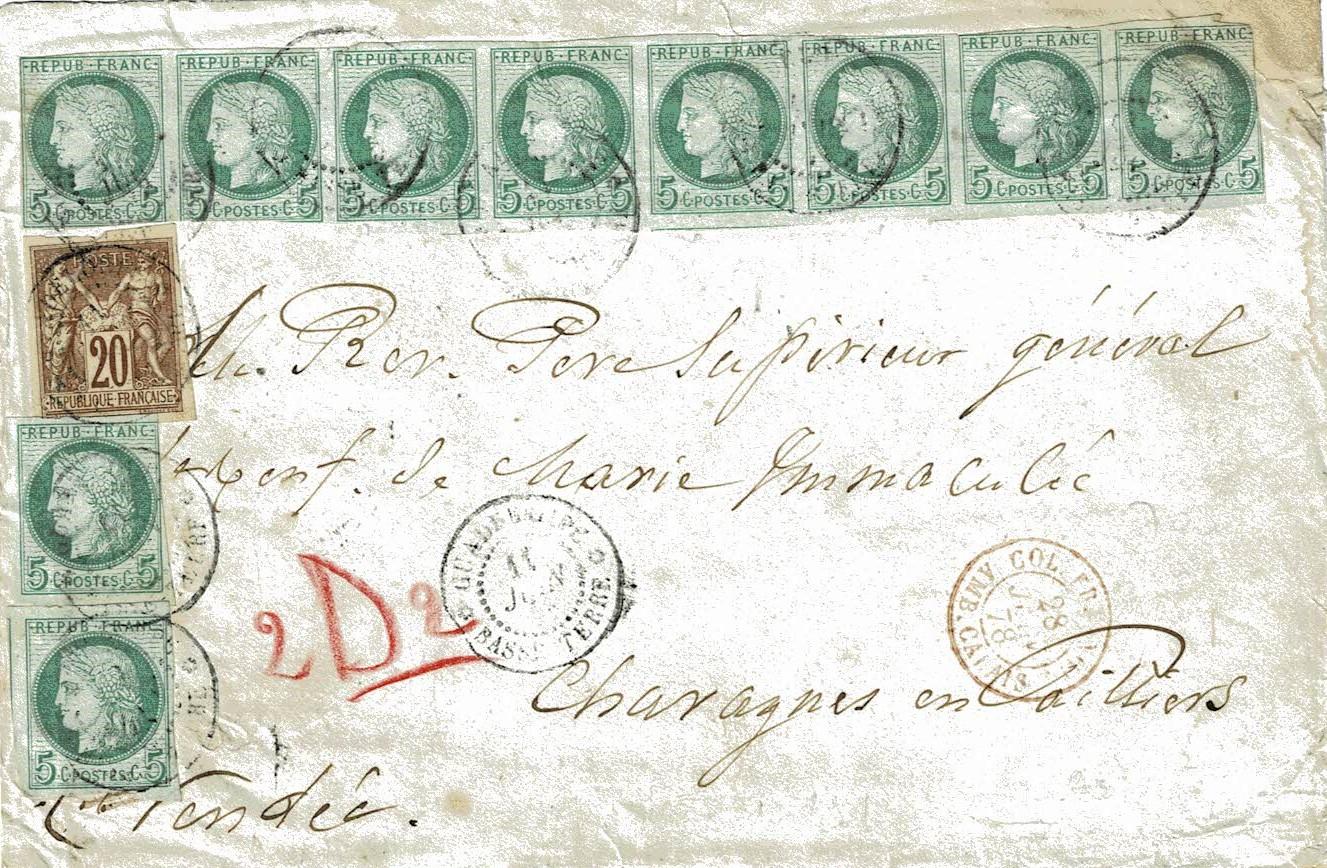 REPUB·FRANC REPUB·FRANC REPUB·FRANC REPUB·FRANC REPUB·FRANC REPUB·FRANC REPUB·FRANC REPUB·FRANC
5 C·POSTES·C 5 5 C·POSTES·C 5 5 C·POSTES·C 5 5 C·POSTES·C 5 5 C·POSTES·C 5 5 C·POSTES·C 5 5 C·POSTES·C 5 5 C·POSTES·C 5
POSTE
20
REPUBLIQUE·FRANÇAISE
Rev. Pere Supérieur général
REPUB·FRANC
de Marie Immaculée
5 C·POSTES·C 5
GUADELOUPE
11
BASSE TERRE
COL. FR.
28
78
AMB. CALAIS
2D2
REPUB·FRANC
Chavagnes en Pailliers
5 C·POSTES·C 5
Vendée.